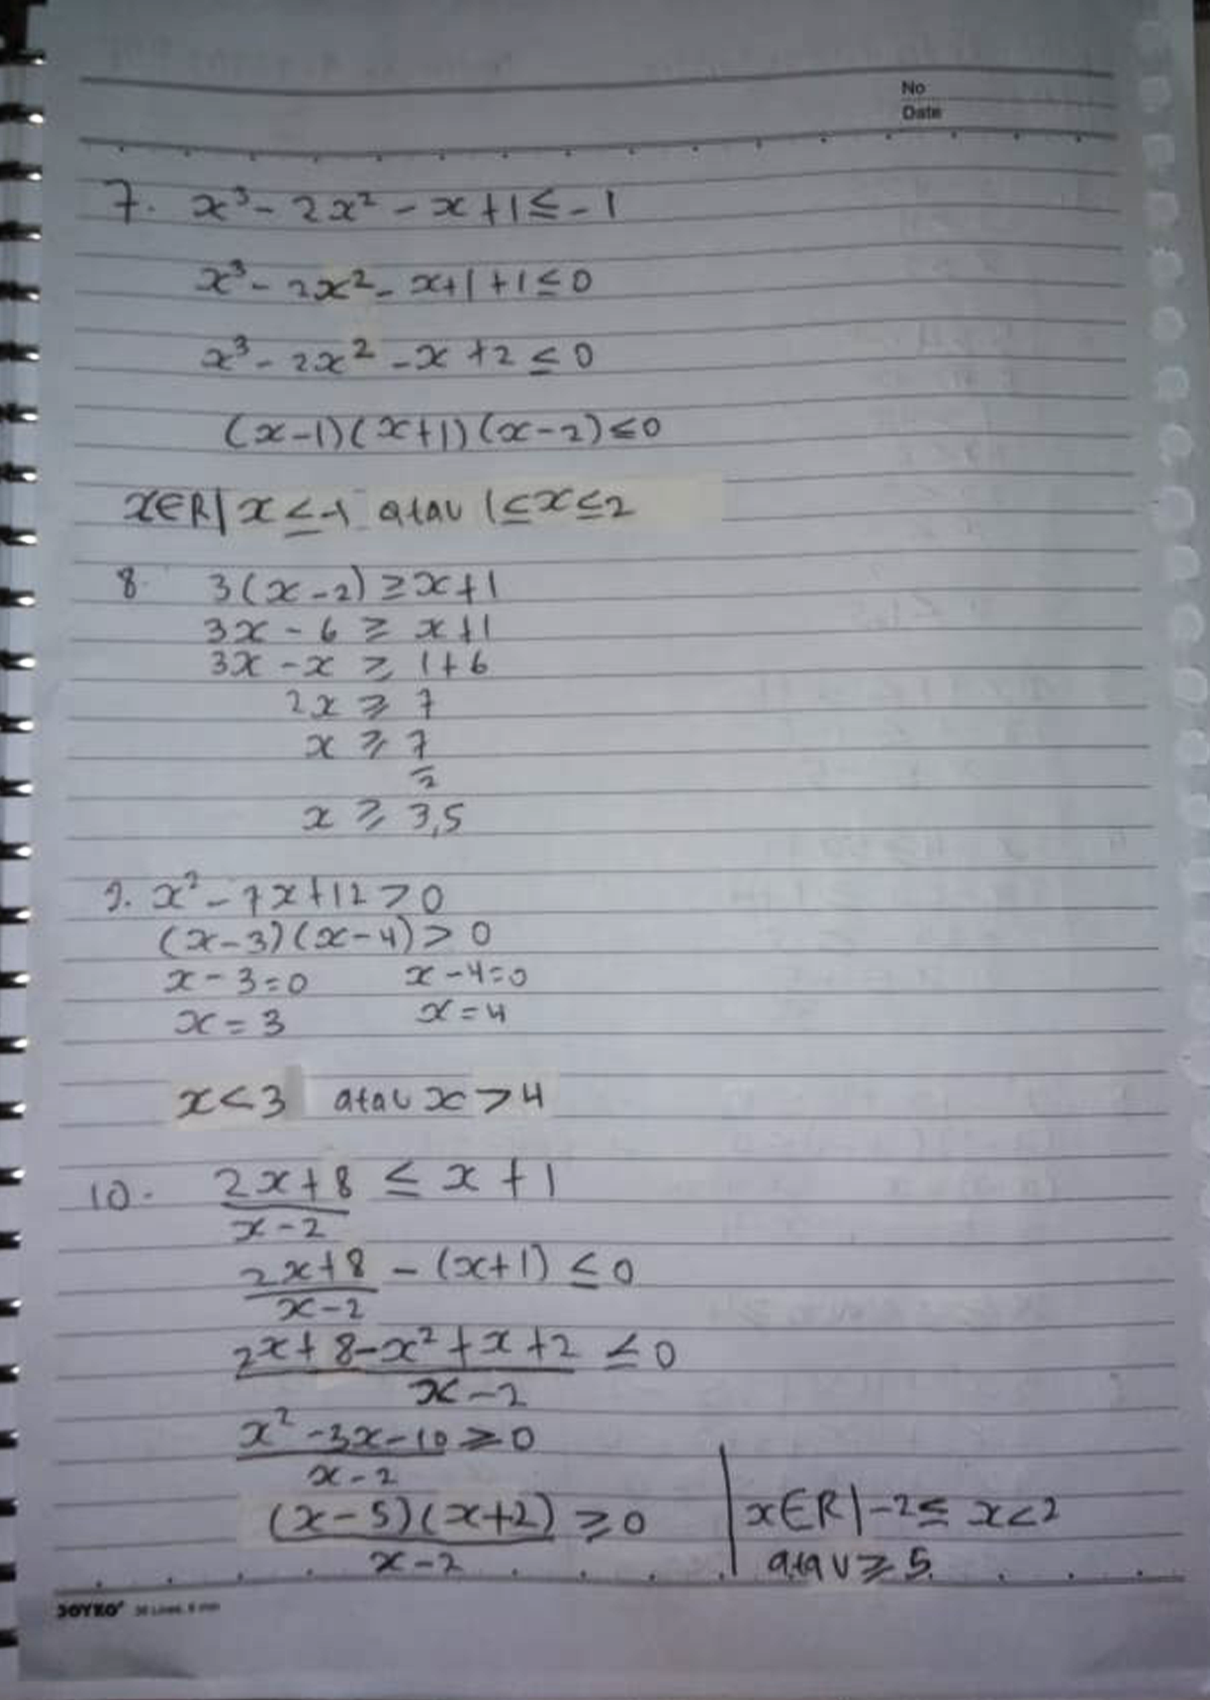 No
Date
7. x³ - 2x² - x + 1 ≤ - 1
x³ - 2x² - x + 1 + 1 ≤ 0
x³ - 2x² - x + 2 ≤ 0
(x-1)(x+1)(x-2) ≤ 0
x∈R | x ≤ -1 atau 1 ≤ x ≤ 2
8. 3(x-2) ≥ x+1
3x - 6 ≥ x+1
3x - x ≥ 1+6
2x ≥ 7
x ≥ 7/2
x ≥ 3,5
9. x² - 7x + 12 > 0
(x-3)(x-4) > 0
x - 3 = 0 x - 4 = 0
x = 3 x = 4
x < 3 atau x > 4
10. (2x+8)/(x-2) ≤ x + 1
(2x+8)/(x-2) - (x+1) ≤ 0
(2x + 8 - x² + x + 2)/(x-2) ≤ 0
(x² - 3x - 10)/(x-2) ≥ 0
(x-5)(x+2)/(x-2) ≥ 0
x∈R | -2 ≤ x < 2
atau ≥ 5.
JOYKO